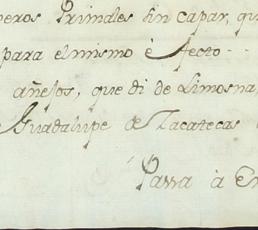 peros Primales sin capar, qu
para el mismo è fecto
añejos, que di de Limosna,
Guadalupe de Zacatecas
Passa à